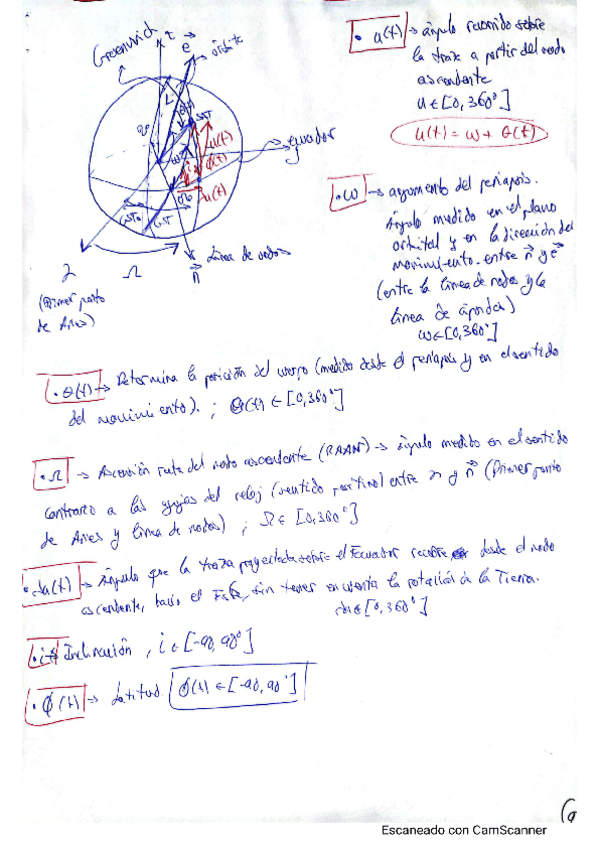 Greenwich
órbita
SAT
ecuador
Línea de nodos
(Primer punto
de Aries)
• u(t) → ángulo recorrido sobre
la traza a partir del nodo
ascendente
u ∈ [0, 360°]
u(t) = ω + θ(t)
• ω → argumento del periapsis.
Ángulo medido en el plano
orbital y en la dirección del
movimiento entre n⃗ y e⃗
(entre la línea de nodos y la
línea de ápsides)
ω ∈ [0, 360°]
• θ(t) → Determina la posición del cuerpo (medido desde el periapsis y en el sentido
del movimiento). ; θ(t) ∈ [0, 360°]
• Ω → Ascensión recta del nodo ascendente (RAAN) → ángulo medido en el sentido
contrario a las agujas del reloj (sentido positivo) entre ♈ y n⃗ (Primer punto
de Aries y línea de nodos) ; Ω ∈ [0, 360°]
→ Ángulo que la traza proyectada sobre el Ecuador recorre desde el nodo
ascendente, hacia el Este, sin tener en cuenta la rotación de la Tierra.
∈ [0, 360°]
Inclinación, i ∈ [-90, 90°]
• ϕ(t) → Latitud ϕ(t) ∈ [-90, 90°]
Escaneado con CamScanner